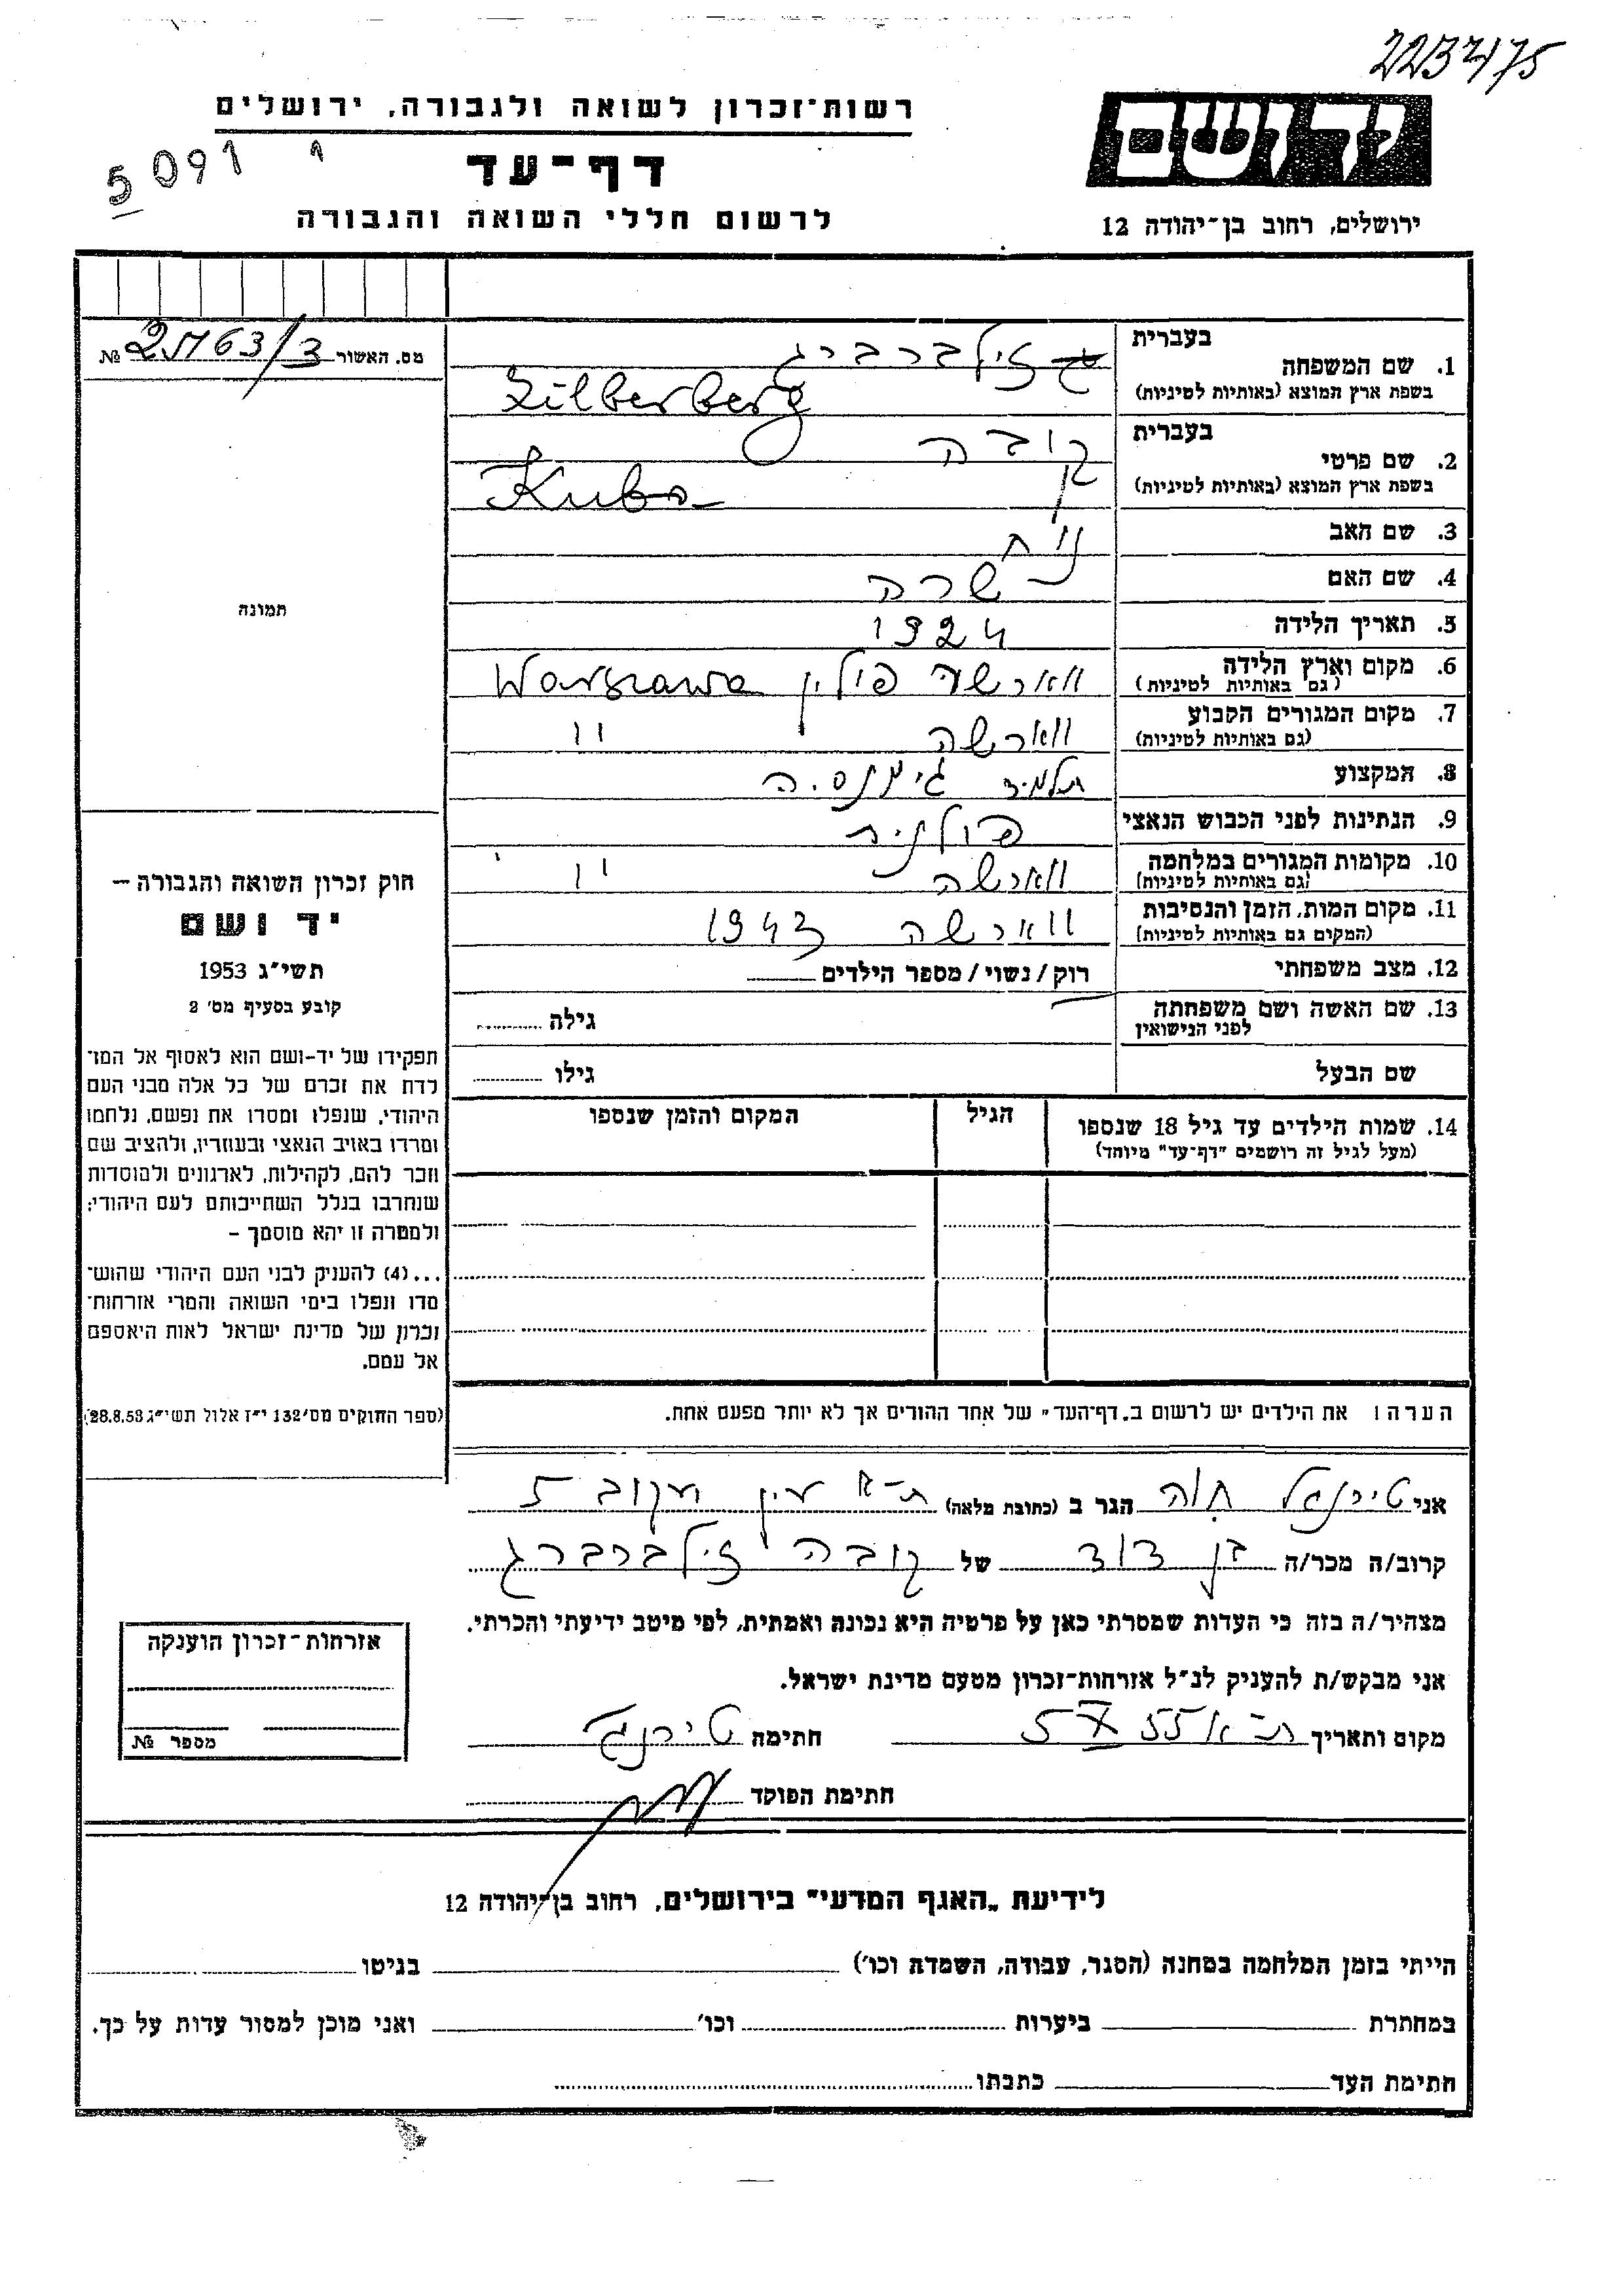 223475
רשות־זכרון לשואה ולגבורה, ירושלים
5091
דף־עד
לרשום חללי השואה והגבורה
יד ושם
ירושלים, רחוב בן־יהודה 12
מס. האשור 3/ №
בעברית
1. שם המשפחה זילברברג
בשפת ארץ המוצא (באותיות לטיניות) Zilberberg
בעברית
2. שם פרטי קובה
בשפת ארץ המוצא (באותיות לטיניות) Kuba
3. שם האב
4. שם האם שרה
5. תאריך הלידה 1924
6. מקום וארץ הלידה ווארשה פולין Warszawa
(גם באותיות לטיניות)
7. מקום המגורים הקבוע ווארשה "
(גם באותיות לטיניות)
8. המקצוע תלמיד גימנסיה
9. הנתינות לפני הכבוש הנאצי פולנית
10. מקומות המגורים במלחמה ווארשה "
(גם באותיות לטיניות)
11. מקום המות, הזמן והנסיבות ווארשה 1943
(המקום גם באותיות לטיניות)
12. מצב משפחתי רוק/נשוי/מספר הילדים
13. שם האשה ושם משפחתה גילה
לפני הנישואין
שם הבעל גילו
14. שמות הילדים עד גיל 18 שנספו הגיל המקום והזמן שנספו
(מעל לגיל זה רושמים "דף־עד" מיוחד)
הערה! את הילדים יש לרשום ב„דף־העד" של אחד ההורים אך לא יותר מפעם אחת.
תמונה
חוק זכרון השואה והגבורה –
יד ושם
תשי"ג 1953
קובע בסעיף מס' 2
תפקידו של יד-ושם הוא לאסוף אל המו־
לדת את זכרם של כל אלה מבני העם
היהודי, שנפלו ומסרו את נפשם, נלחמו
ומרדו באויב הנאצי ובעוזריו, ולהציב שם
וזכר להם, לקהילות, לארגונים ולמוסדות
שנחרבו בגלל השתייכותם לעם היהודי;
ולמטרה זו יהא מוסמך –
...(4) להעניק לבני העם היהודי שהוש־
מדו ונפלו בימי השואה והמרי אזרחות־
זכרון של מדינת ישראל לאות היאספם
אל עמם.
(ספר החוקים מס' 132 י"ז אלול תשי"ג 28.8.53)
אני חוה הגר ב (כתובת מלאה) ת-א עין יעקוב 5
קרוב/ה מכר/ה בן דוד של קובה זילברברג
מצהיר/ה בזה כי העדות שמסרתי כאן על פרטיה היא נכונה ואמתית, לפי מיטב ידיעתי והכרתי.
אני מבקש/ת להעניק לנ"ל אזרחות־זכרון מטעם מדינת ישראל.
מקום ותאריך ת-א 5 X 55 חתימה
חתימת הפוקד
אזרחות־זכרון הוענקה
מספר №
לידיעת „האגף המדעי" בירושלים, רחוב בן־יהודה 12
הייתי בזמן המלחמה במחנה (הסגר, עבודה, השמדה וכו') בגיטו
במחתרת ביערות וכו' ואני מוכן למסור עדות על כך.
חתימת העד כתבתו